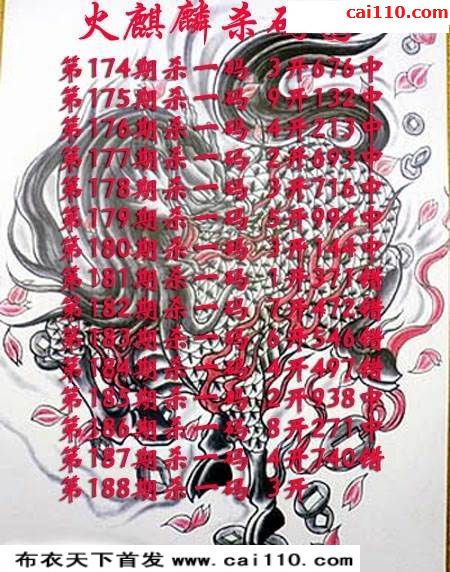 cai110.com
火麒麟杀码
第174期杀一码 3开676中
第175期杀一码 9开132中
第176期杀一码 4开213中
第177期杀一码 2开693中
第178期杀一码 3开716中
第179期杀一码 5开994中
第180期杀一码 3开144中
第181期杀一码 1开371错
第182期杀一码 7开472错
第183期杀一码 6开546错
第184期杀一码 4开497错
第185期杀一码 2开938中
第186期杀一码 8开271中
第187期杀一码 4开740错
第188期杀一码 3开
布衣天下首发 www.cai110.com